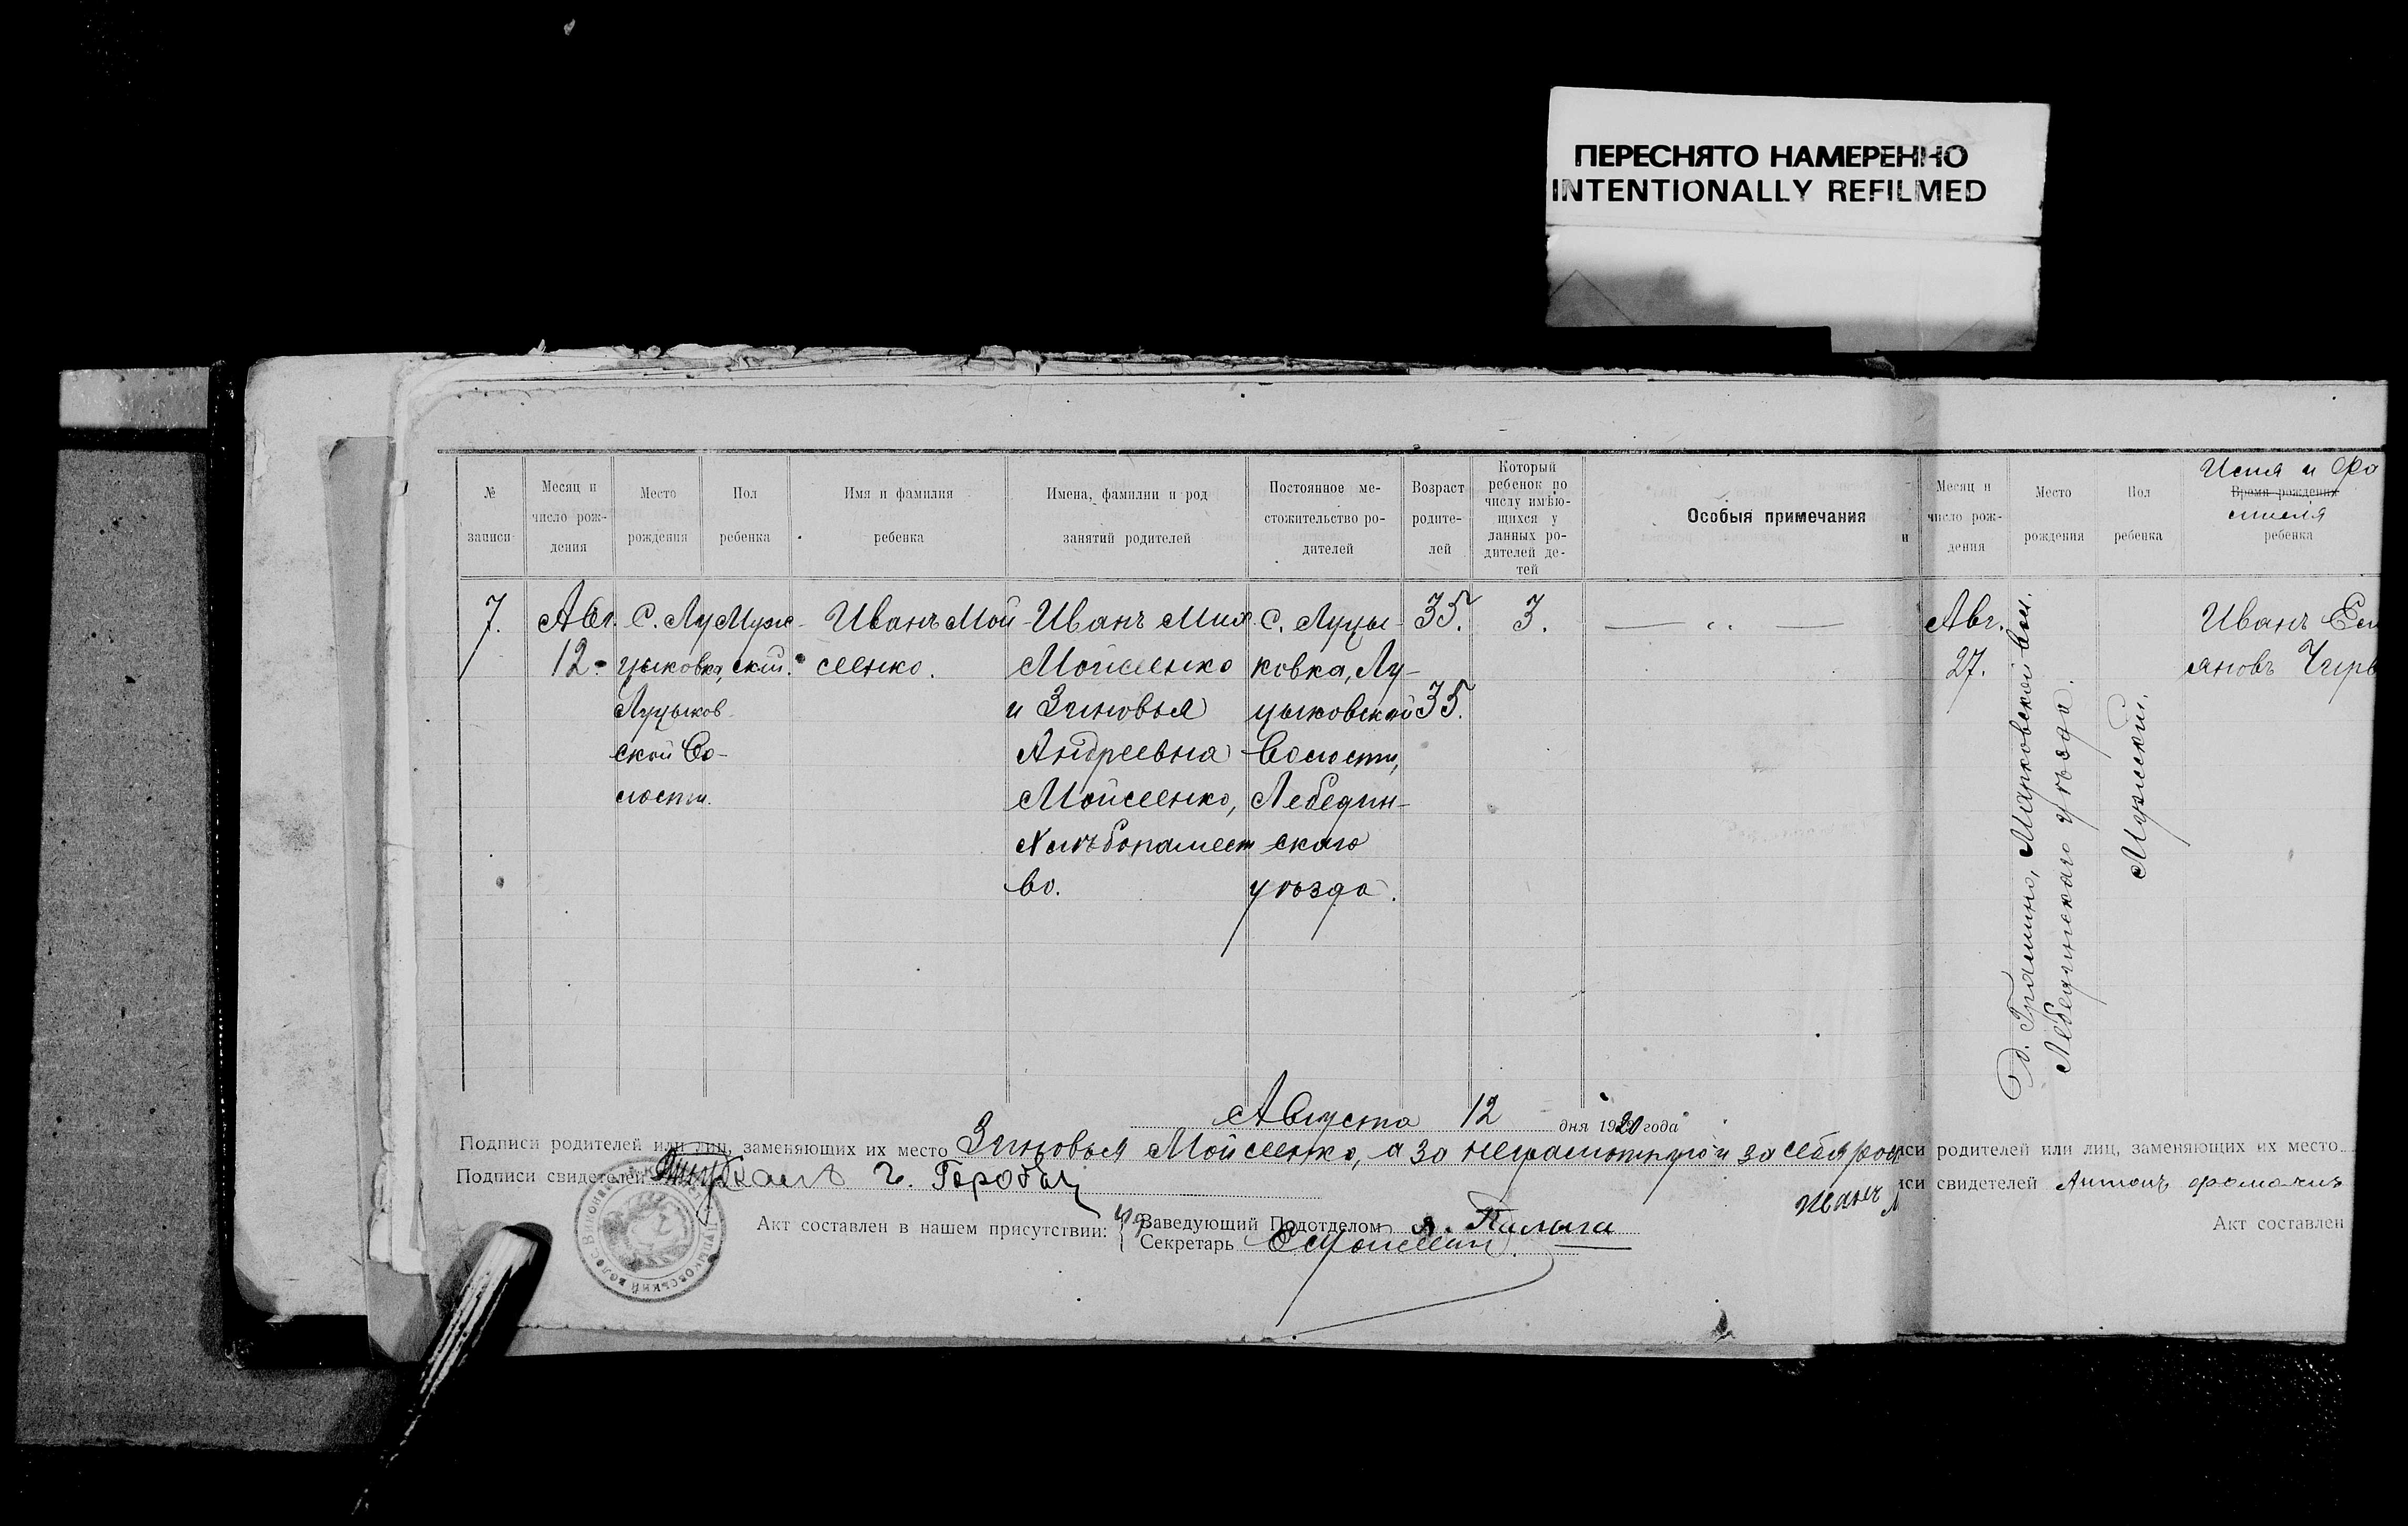 ПЕРЕСНЯТО НАМЕРЕННО
INTENTIONALLY REFILMED
№ записи
Месяц и число рож- дения
Место рождения
Пол ребенка
Имя и фамилия ребенка
Имена, фамилии и род занятий родителей
Постоянное ме- стожительство ро- дителей
Возраст родите- лей
Который ребенок по числу имѣю- щихся у данных ро- дителей де- тей
Особыя примечания
7.
Авг. 12.
С. Лу цыковка, Луцыков ской Во- лости.
Муж- ский.
Иванъ Мой- сеенко.
Иванъ Мих. Мойсеенко и Зиновья Андреевна Мойсеенко, Хлѣбопашест во.
С. Луцы- ковка, Лу- цыковской Волости, Лебедин- скаго уѣзда.
35.
35.
3.
Августа 12 дня 1920 года
Подписи родителей или лиц, заменяющих их место Зиновья Мойсеенко, а за неграмотную и за себя
Подписи свидетелей
Акт составлен в нашем присутствии:
Заведующий Подотделом
Секретарь
и
Месяц и число рож- дения
Место рождения
Пол ребенка
Имя и фа
Время рождения
милія
ребенка
Авг. 27.
Марковской вол.
Лебединскаго уѣзда.
Мужский.
Иванъ
иси родителей или лиц, заменяющих их место
иси свидетелей Антонъ
Акт составлен